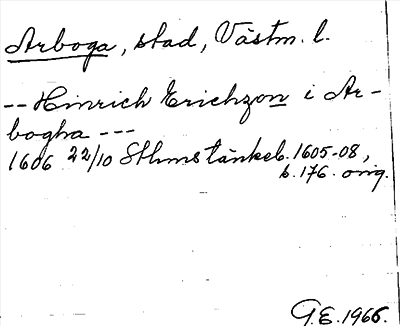 Arboga, stad, Västm. l.
-- Hinrich Erichzon i Ar-
bogha ---
1606 22/10 Sthms tänkeb. 1605-08,
s. 176. orig.
G.E. 1966.